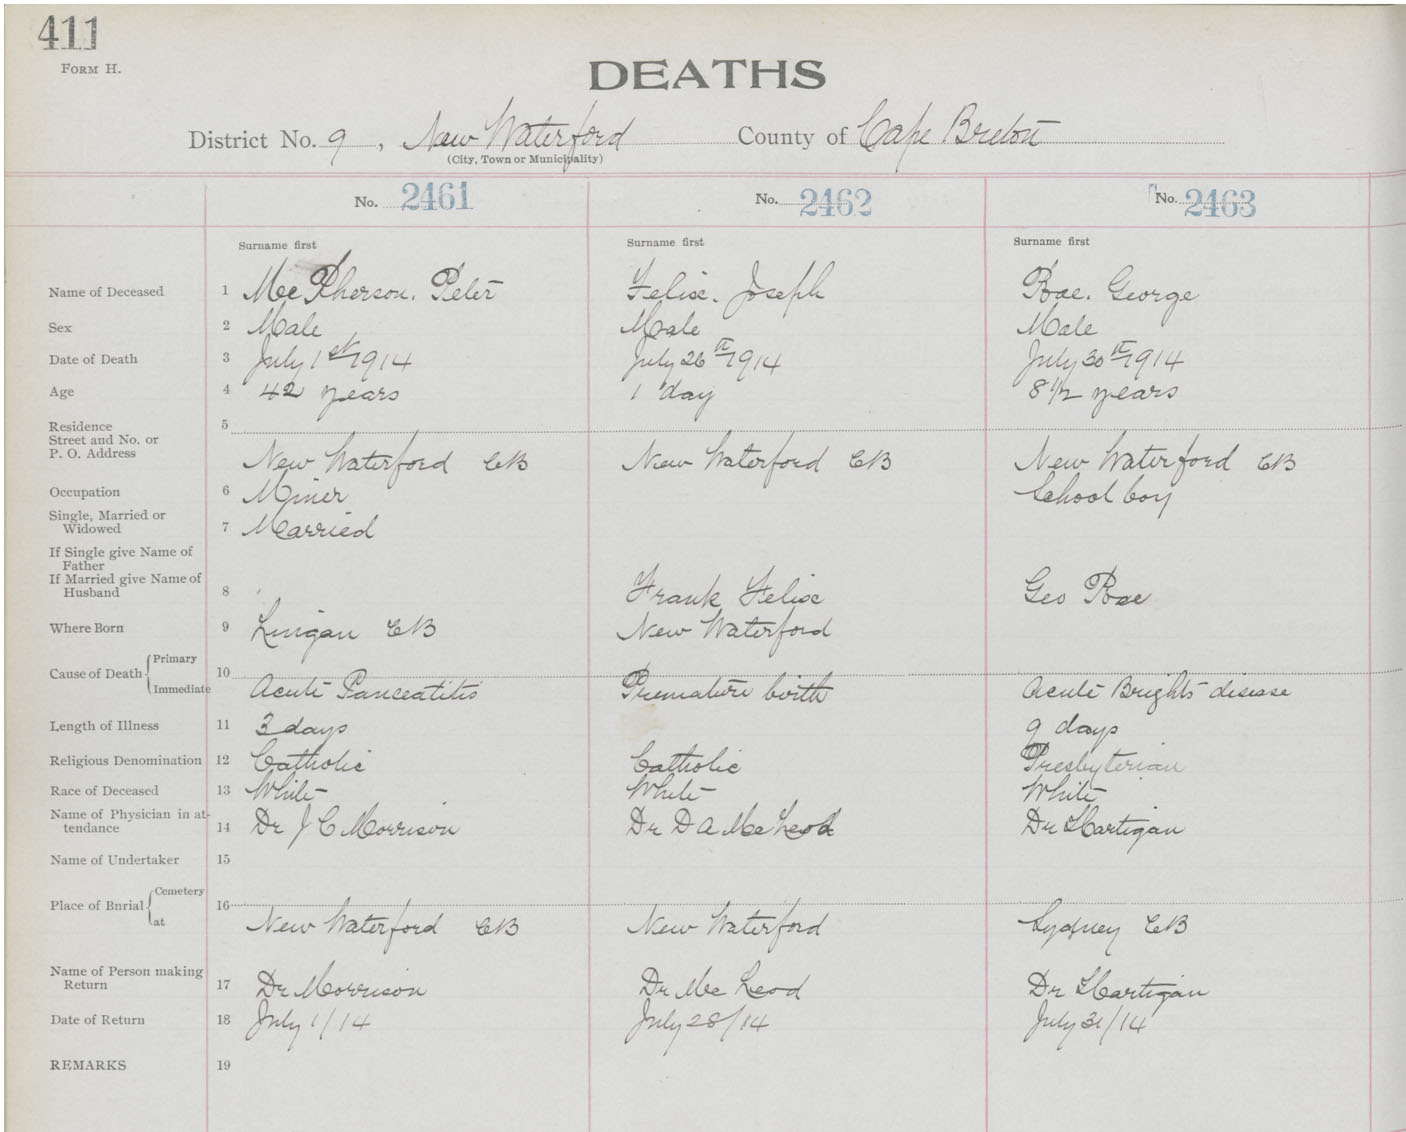 411
FORM H.
DEATHS
District No. 9, New Waterford County of Cape Breton
(City, Town or Municipality)
No. 2461 No. 2462 No. 2463
Surname first Surname first Surname first
Name of Deceased 1 Mc Pherson. Peter Felix. Joseph Rae. George
Sex 2 Male Male Male
Date of Death 3 July 1st 1914 July 26th 1914 July 30th 1914
Age 4 42 years 1 day 8 1/2 years
Residence 5
Street and No. or
P. O. Address New Waterford CB New Waterford CB New Waterford CB
Occupation 6 Miner School boy
Single, Married or
Widowed 7 Married
If Single give Name of
Father
If Married give Name of
Husband 8 Frank Felix Geo Rae
Where Born 9 Lingan CB New Waterford
Cause of Death Primary 10
Immediate Acute Pancreatitis Premature birth Acute Brights disease
Length of Illness 11 3 days 9 days
Religious Denomination 12 Catholic Catholic Presbyterian
Race of Deceased 13 White White White
Name of Physician in at-
tendance 14 Dr J C Morrison Dr D A Mc Leod Dr Hartigan
Name of Undertaker 15
Place of Bnrial Cemetery 16
at New Waterford CB New Waterford Sydney CB
Name of Person making
Return 17 Dr Morrison Dr Mc Leod Dr Hartigan
Date of Return 18 July 1/14 July 28/14 July 31/14
REMARKS 19